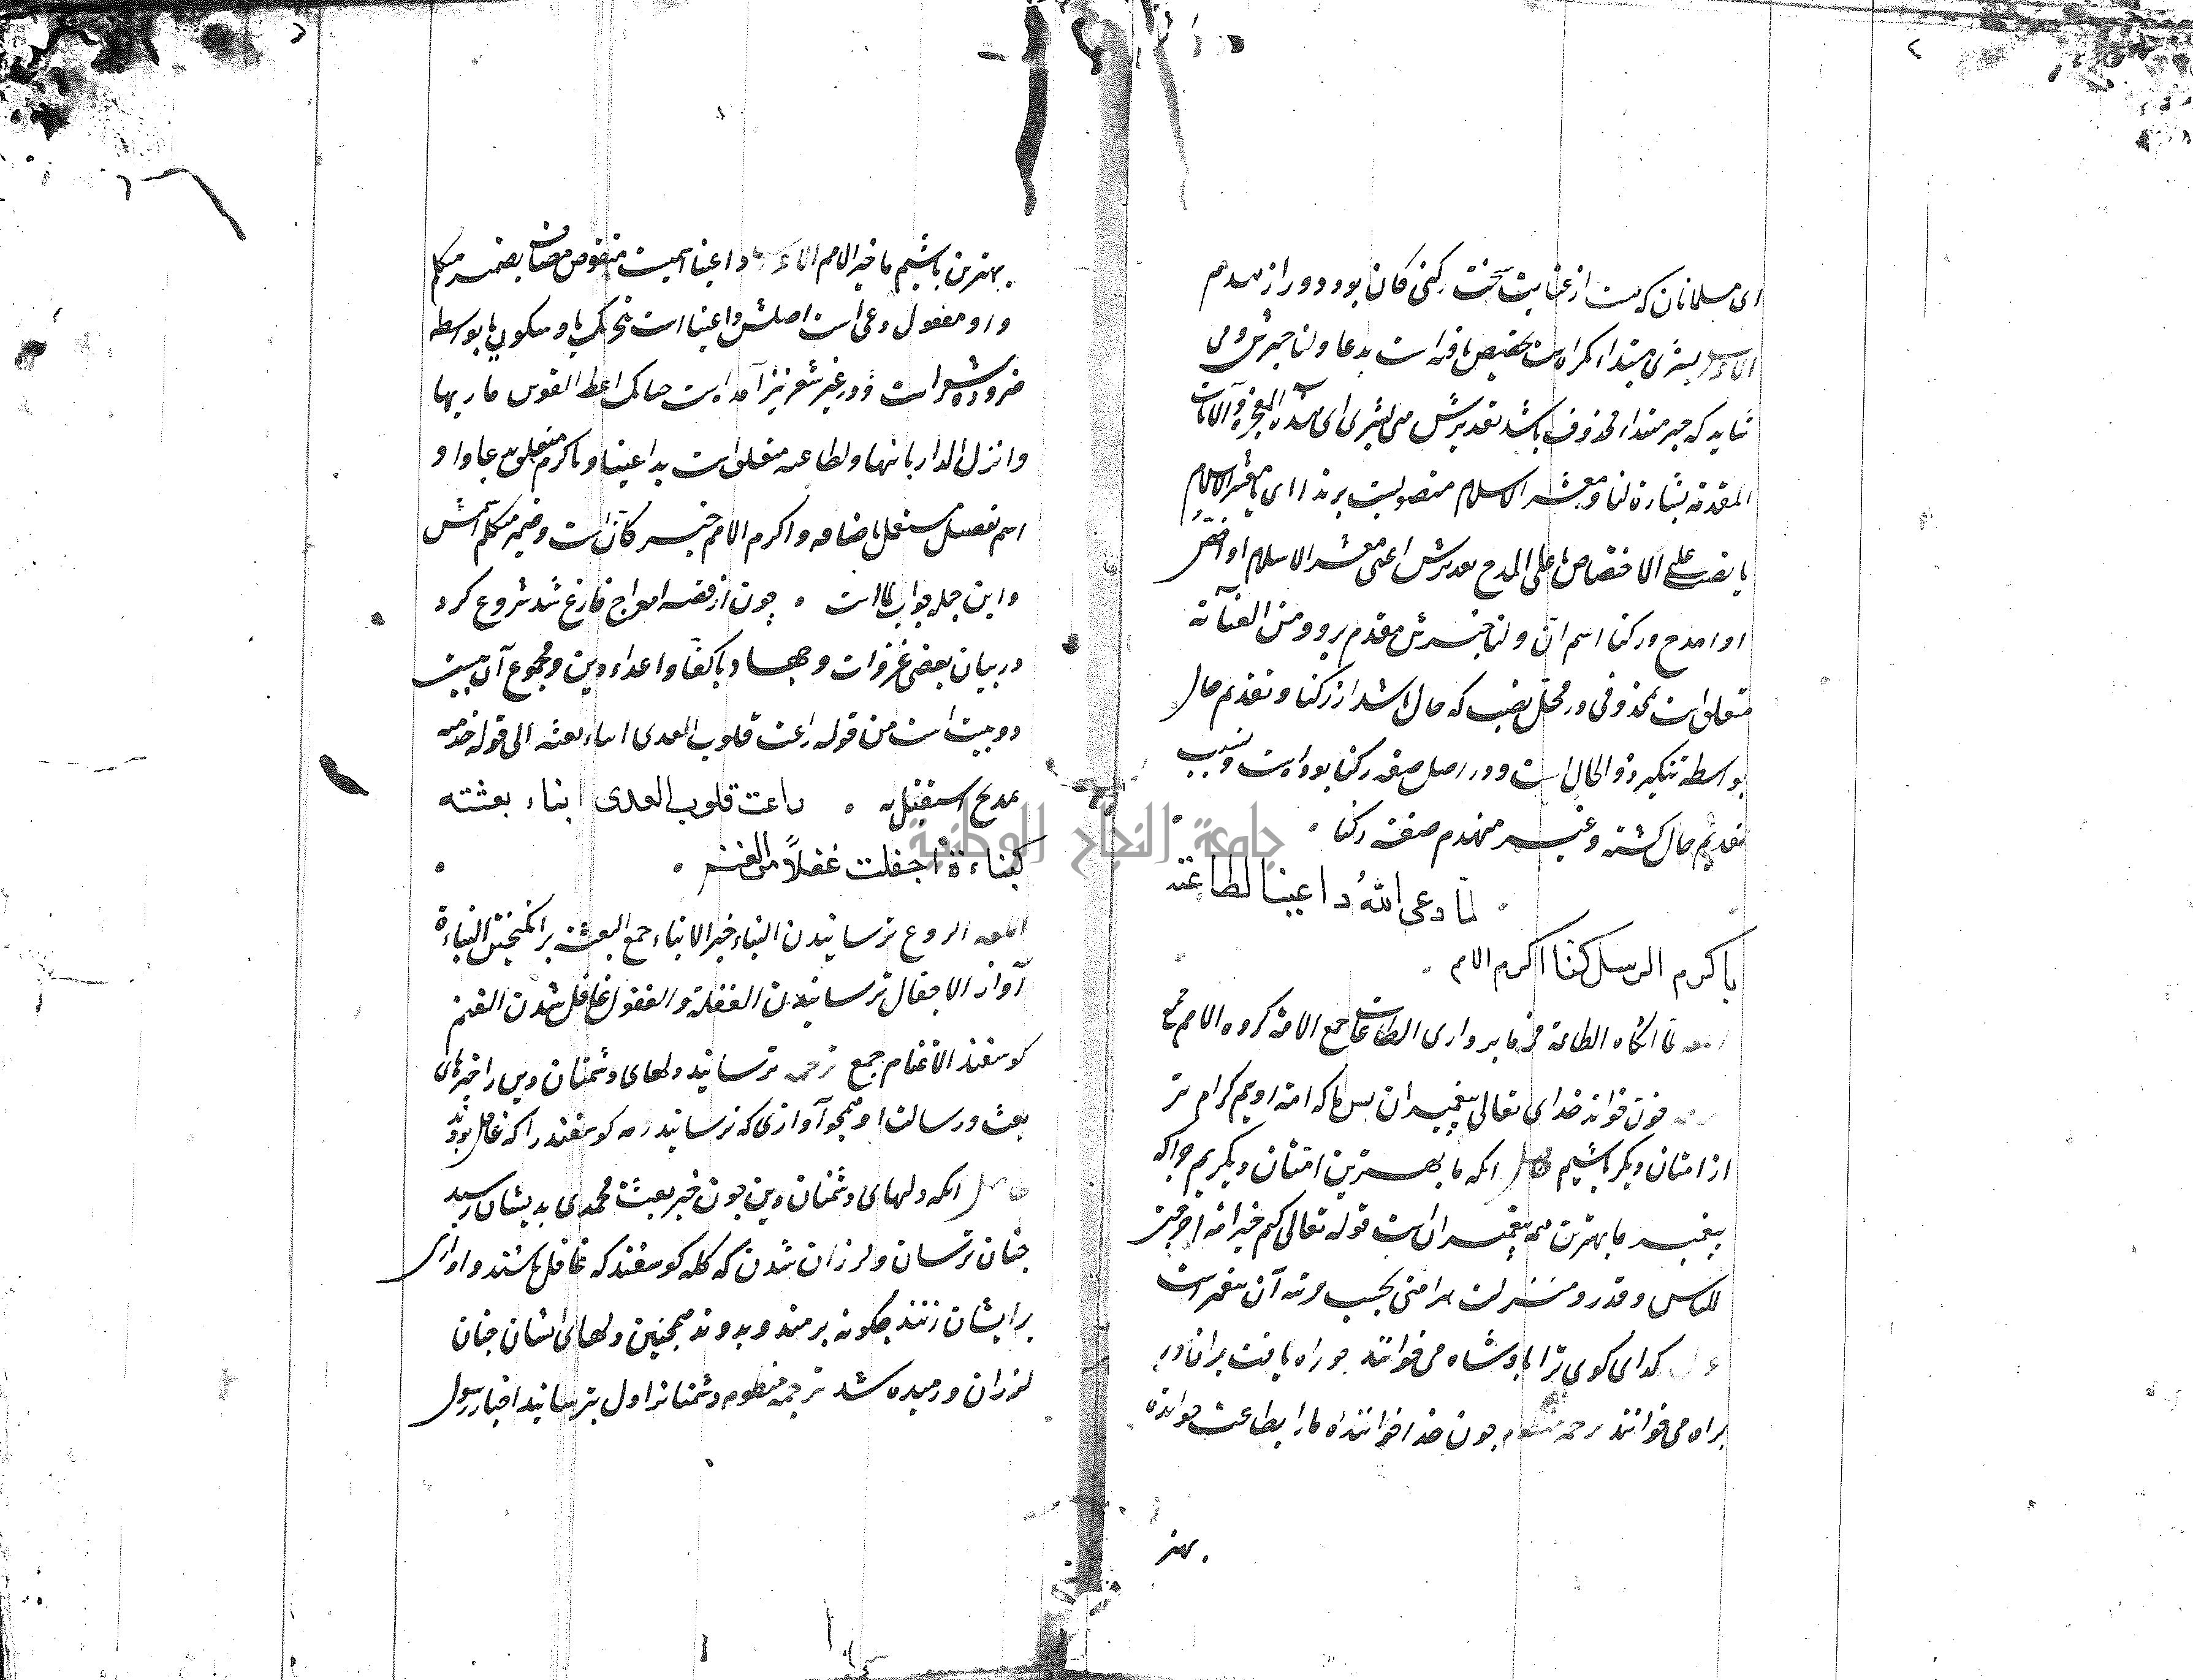 ای مسلمانان که هست از عنایت سخت رکنی کان بود دور از هدم
الاعراب بشری مبتداء نکره است تخصیص یافته است بدعا ولنا خبرش و می
شاید که خبر مبتداء محذوف باشد تقدیرش هی بشری ای هذه المعجزة والآیات
المقدمة بشارة لنا و معشر الاسلام منصوبست برندا ای یا معشر الاسلام
یا نصب علی الاختصاص یا علی المدح تقدیرش اعنی معشر الاسلام او اخص
او امدح و رکنا اسم ان ولنا خبرش مقدم برو و من العنایة
متعلق است بمحذوفی در محل نصب که حال باشد از رکنا و تقدیم حال
بواسطه تنکیر ذو الحال است و در اصل صفه رکنا بوده است و بسبب
تقدیم حال کشته و غیر منهدم صفة رکنا
لمّا دعی اللهُ داعینا لطاعته
باکرم الرسل کنّا اکرم الامم
لما انکاه الطاعة فرمانبرداری الطاعات جمع الامة کروه الامم جمع
چون خواند خدای تعالی پیغمبران پس ما که امة اوییم کرام تر
از امتان دیکر باشیم حاصل انکه ما بهترین امتان دیکریم چراکه
پیغمبر ما بهترین همه پیغمبرانست قوله تعالی کنتم خیر امة اخرجت
للناس و قدر و منزلت هر امتی بحسب مرتبه آن پیغمبر است
کدای کوی ترا پادشاه می خوانند
براه می خوانند ترجمه منظوم چون خدا خوانند ما را بطاعت خوانده
بهتر
بهترین باشیم ما خیر الامم الاعراب داعینا اسمیست منقوص مضاف بضمیر متکلم
و او مفعول دعی است اصلش داعینا است بتحریک یا و سکون یا بواسطه
ضرورة شعر است و در غیر شعر نیز آمده است چنانک اعط القوس باریها
و انزل الدار بانیها ولطاعته متعلق است بداعینا و باکرم متعلق بدعا و او
اسم تفصیل مستعمل باضافه و اکرم الامم خبر کان است و ضمیر متکلم اسمش
و این جمله جواب لما است چون از قصه معراج فارغ شد شروع کرد
در بیان بعضی غزوات و جهاد با کفار و اعداء دین و مجموع آن بیست
دو بیت است من قوله راعت قلوب العدی انباء بعثته الی قوله خدمته
بمدیح استقیل به راعت قلوب العدی انباء بعثته
کنباءة اجفلت غفلاً من الغنم
اللغة الروع ترسانیدن النباء خبر الانباء جمع البعثة برانکیختن النباءة
آواز الاجفال ترسانیدن الغفلة والغفول غافل شدن الغنم
کوسفند الاغنام جمع ترجمه ترسانید دلهای دشمنان دین را خبرهای
بعث و رسالت او همچو آوازی که ترسانید رمه کوسفند را که غافل بودند
حاصل انکه دلهای دشمنان دین چون خبر بعثت محمدی بدیشان رسید
چنان ترسان و لرزان شدن که کله کوسفند که غافل باشند و اوازی
برایشان زنند چکونه برمند و بدوند همچنین دلهای ایشان چنان
لرزان و رمیده شد ترجمه منظوم دشمنانرا دل بترسانید اخبار رسول
جامعة النجاح الوطنية